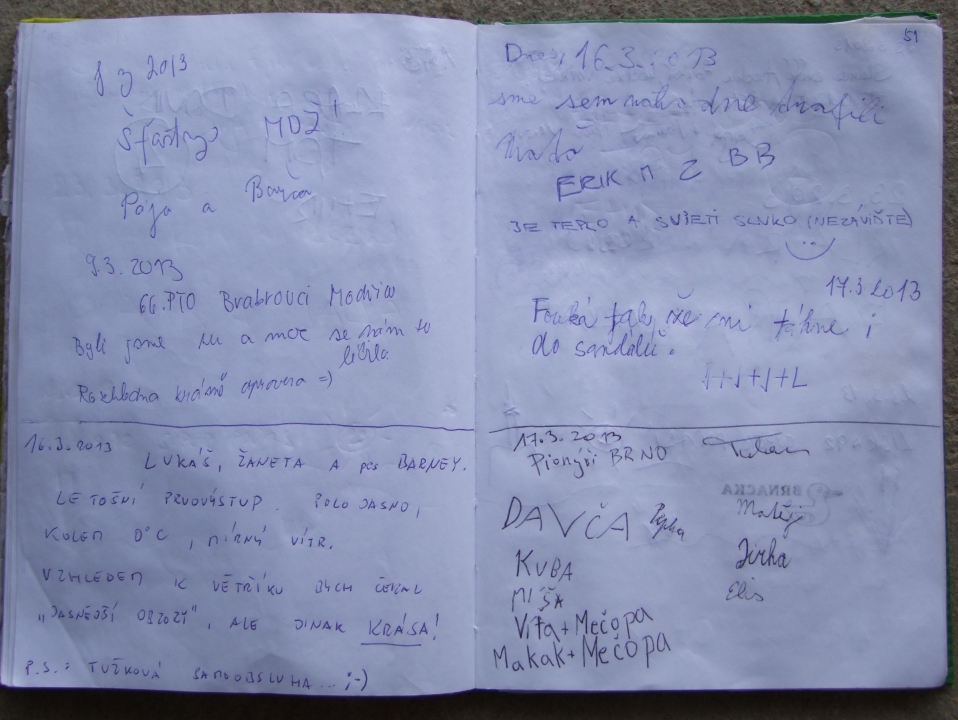 8 3 2013
Šťastnys MDŽ
Pája a Barča
9.3.2013
66.PTO Brabrouci Modřice
Byli jsme tu a moc se nám to
líbilo.
Rozhledna krásně opravena =)
16.3.2013
LUKÁŠ, ŽANETA A pes BARNEY.
LETOŠNÍ PRVOVÝSTUP. POLOJASNO,
KOLEM 0°C, MÍRNÝ VÍTR.
VZHLEDEM K VĚTŘÍKU BYCH ČEKAL
"JASNĚJŠÍ OBZORY", ALE JINAK KRÁSA!
P.S.: TUŽKOVÁ SAMOOBSLUHA... ;-)
51
Dnes, 16.3.2013
sme sem náho dne trafili
ERIK M Z BB
JE TEPLO A SVIETI SLNKO (NEZÁVIŠTE)
17.3 2013
Fouká tak, že mi táhne i
do sandálů.
J+J+J+L
17.3.2013
Pionýři BRNO
DAVČA Pepka
Matěj
KUBA
Jirka
MIŠA
Elis
Víťa + Mečopa
Makak + Mečopa